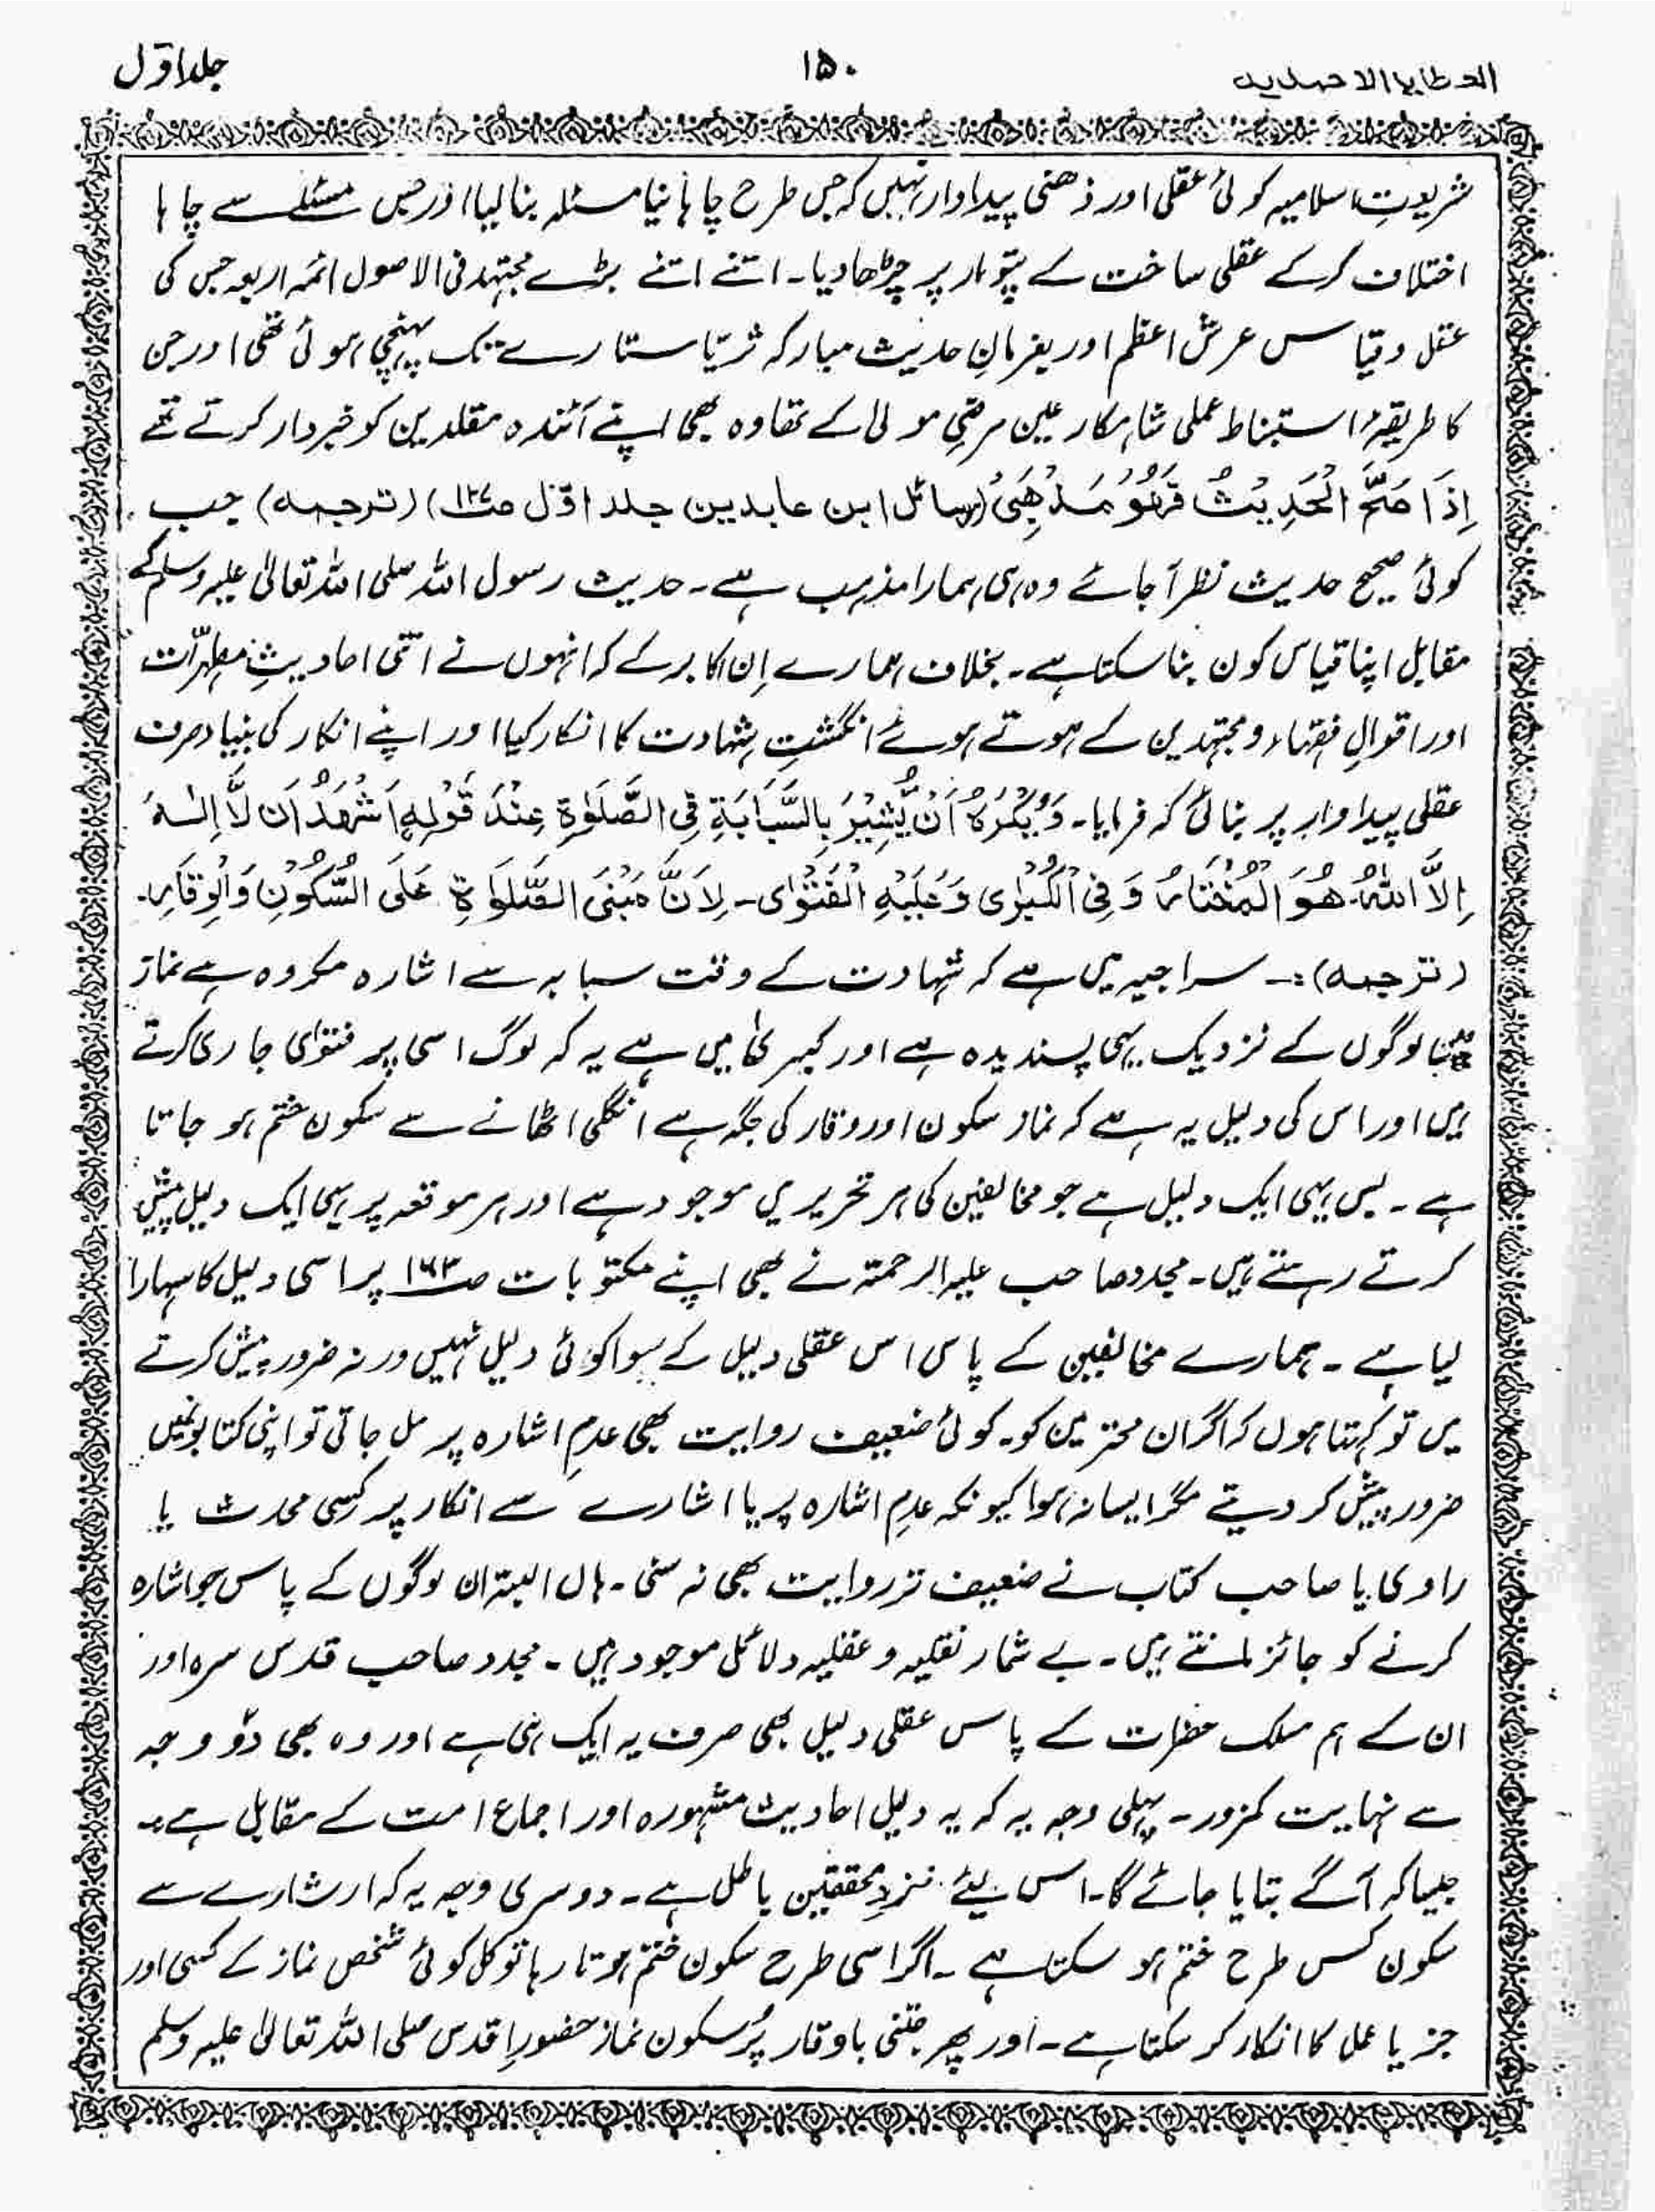 العطایا الاحمدیہ ۱۵۰ جلد اوّل
شریعتِ اسلامیہ کوئی عقلی اور ذھنی پیداوار نہیں کہ جس طرح چاہا نیا مسئلہ بنا لیا اور جس مسئلے سے چاہا
اختلاف کر کے عقلی ساخت کے پتوار پر چڑھا دیا۔ اتنے اتنے بڑے مجتہد فی الاصول ائمہ اربعہ جس کی
عقل و قیاس عرش اعظم اور بفرمانِ حدیث مبارکہ ثریّا ستارے تک پہنچی ہوئی تھی اور جن
کا طریقۂ استنباط عملی شاہکار عین مرضیِ مولیٰ کے تھا وہ بھی اپنے آئندہ مقلدین کو خبردار کرتے تھے
اِذَا صَحَّ الْحَدِیْثُ فَھُوَ مَذْھَبِیْ (رسائل ابن عابدین جلد اوّل ص۱۲۷) (ترجمہ) جب
کوئی صحیح حدیث نظر آ جائے وہ ہی ہمارا مذہب ہے۔ حدیث رسول اللہ صلی اللہ تعالیٰ علیہ وسلم کے
مقابل اپنا قیاس کون بنا سکتا ہے۔ بخلاف ہمارے اِن اکابر کے کہ انہوں نے اتنی احادیثِ مطہرّات
اور اقوالِ فقہاء و مجتہدین کے ہوتے ہوئے انگشتِ شہادت کا انکار کیا اور اپنے انکار کی بنیاد صرف
عقلی پیداوار پر بنائی کہ فرمایا۔ وَیُکْرَہُ اَنْ یُّشِیْرَ بِالسَّبَابَةِ فِی الصَّلٰوةِ عِنْدَ قَوْلِهٖ اَشْهَدُ اَن لَّا اِلٰـهَ
اِلَّا اللهُ هُوَ الْمُخْتَارُ وَ فِی الْکُبْرٰی وَعَلَیْهِ الْفَتْوٰی۔ لِاَنَّ مَبْنَی الصَّلَوٰةِ عَلَی السُّکُوْنِ وَالْوِقَارِ۔
(ترجمہ):۔ سراجیہ میں ہے کہ شہادت کے وقت سبابہ سے اشارہ مکروہ ہے نماز
میں لوگوں کے نزدیک یہی پسندیدہ ہے اور کبریٰ میں ہے یہ کہ لوگ اسی پر فتوٰی جاری کرتے
ہیں اور اس کی دلیل یہ ہے کہ نماز سکون اور وقار کی جگہ ہے انگلی اٹھانے سے سکون ختم ہو جاتا
ہے۔ بس یہی ایک دلیل ہے جو مخالفین کی ہر تحریر میں موجود ہے اور ہر موقعہ پر یہی ایک دلیل پیش
کرتے رہتے ہیں۔ مجدد صاحب علیہ الرحمتہ نے بھی اپنے مکتوبات ص۱۶۳ پر اسی دلیل کا سہارا
لیا ہے۔ ہمارے مخالفین کے پاس اس عقلی دلیل کے سوا کوئی دلیل نہیں ورنہ ضرور پیش کرتے
میں تو کہتا ہوں کہ اگر ان محترمین کو۔ کوئی ضعیف روایت بھی عدمِ اشارہ پر مل جاتی تو اپنی کتابوں میں
ضرور پیش کر دیتے مگر ایسا نہ ہوا کیونکہ عدمِ اشارہ پر یا اشارے سے انکار پر کسی محدث یا
راوی یا صاحب کتاب نے ضعیف تر روایت بھی نہ سنی۔ ہاں البتہ ان لوگوں کے پاس جو اشارہ
کرنے کو جائز مانتے ہیں۔ بے شمار نقلیہ و عقلیہ دلائل موجود ہیں۔ مجدد صاحب قدس سرہ اور
ان کے ہم مسلک حضرات کے پاس عقلی دلیل بھی صرف یہ ایک ہی ہے اور وہ بھی دو وجہ
سے نہایت کمزور۔ پہلی وجہ یہ کہ یہ دلیل احادیث مشہورہ اور اجماع امت کے مقابل ہے۔
جیسا کہ آگے بتایا جائے گا۔ اس لیئے نزدِ محققین باطل ہے۔ دوسری وجہ یہ کہ اشارے سے
سکون کس طرح ختم ہو سکتا ہے۔ اگر اسی طرح سکون ختم ہوتا رہا تو کل کوئی شخص نماز کے کسی اور
جز یا عمل کا انکار کر سکتا ہے۔ اور پھر جتنی باوقار پُرسکون نماز حضورِ اقدس صلی اللہ تعالیٰ علیہ وسلم